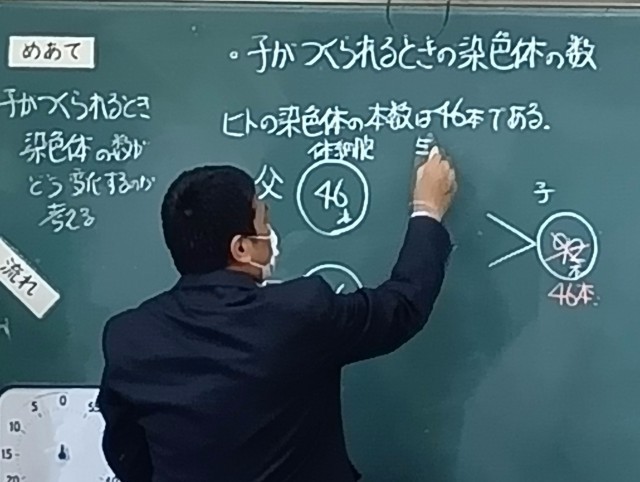 めあて
・子がつくられるときの染色体の数
子がつくられるとき
染色体の数が
どう変化するのか
考える
ヒトの染色体の本数は46本である.
体細胞
父
46
本
子
本
46本.
流れ
5 0 55
10
15